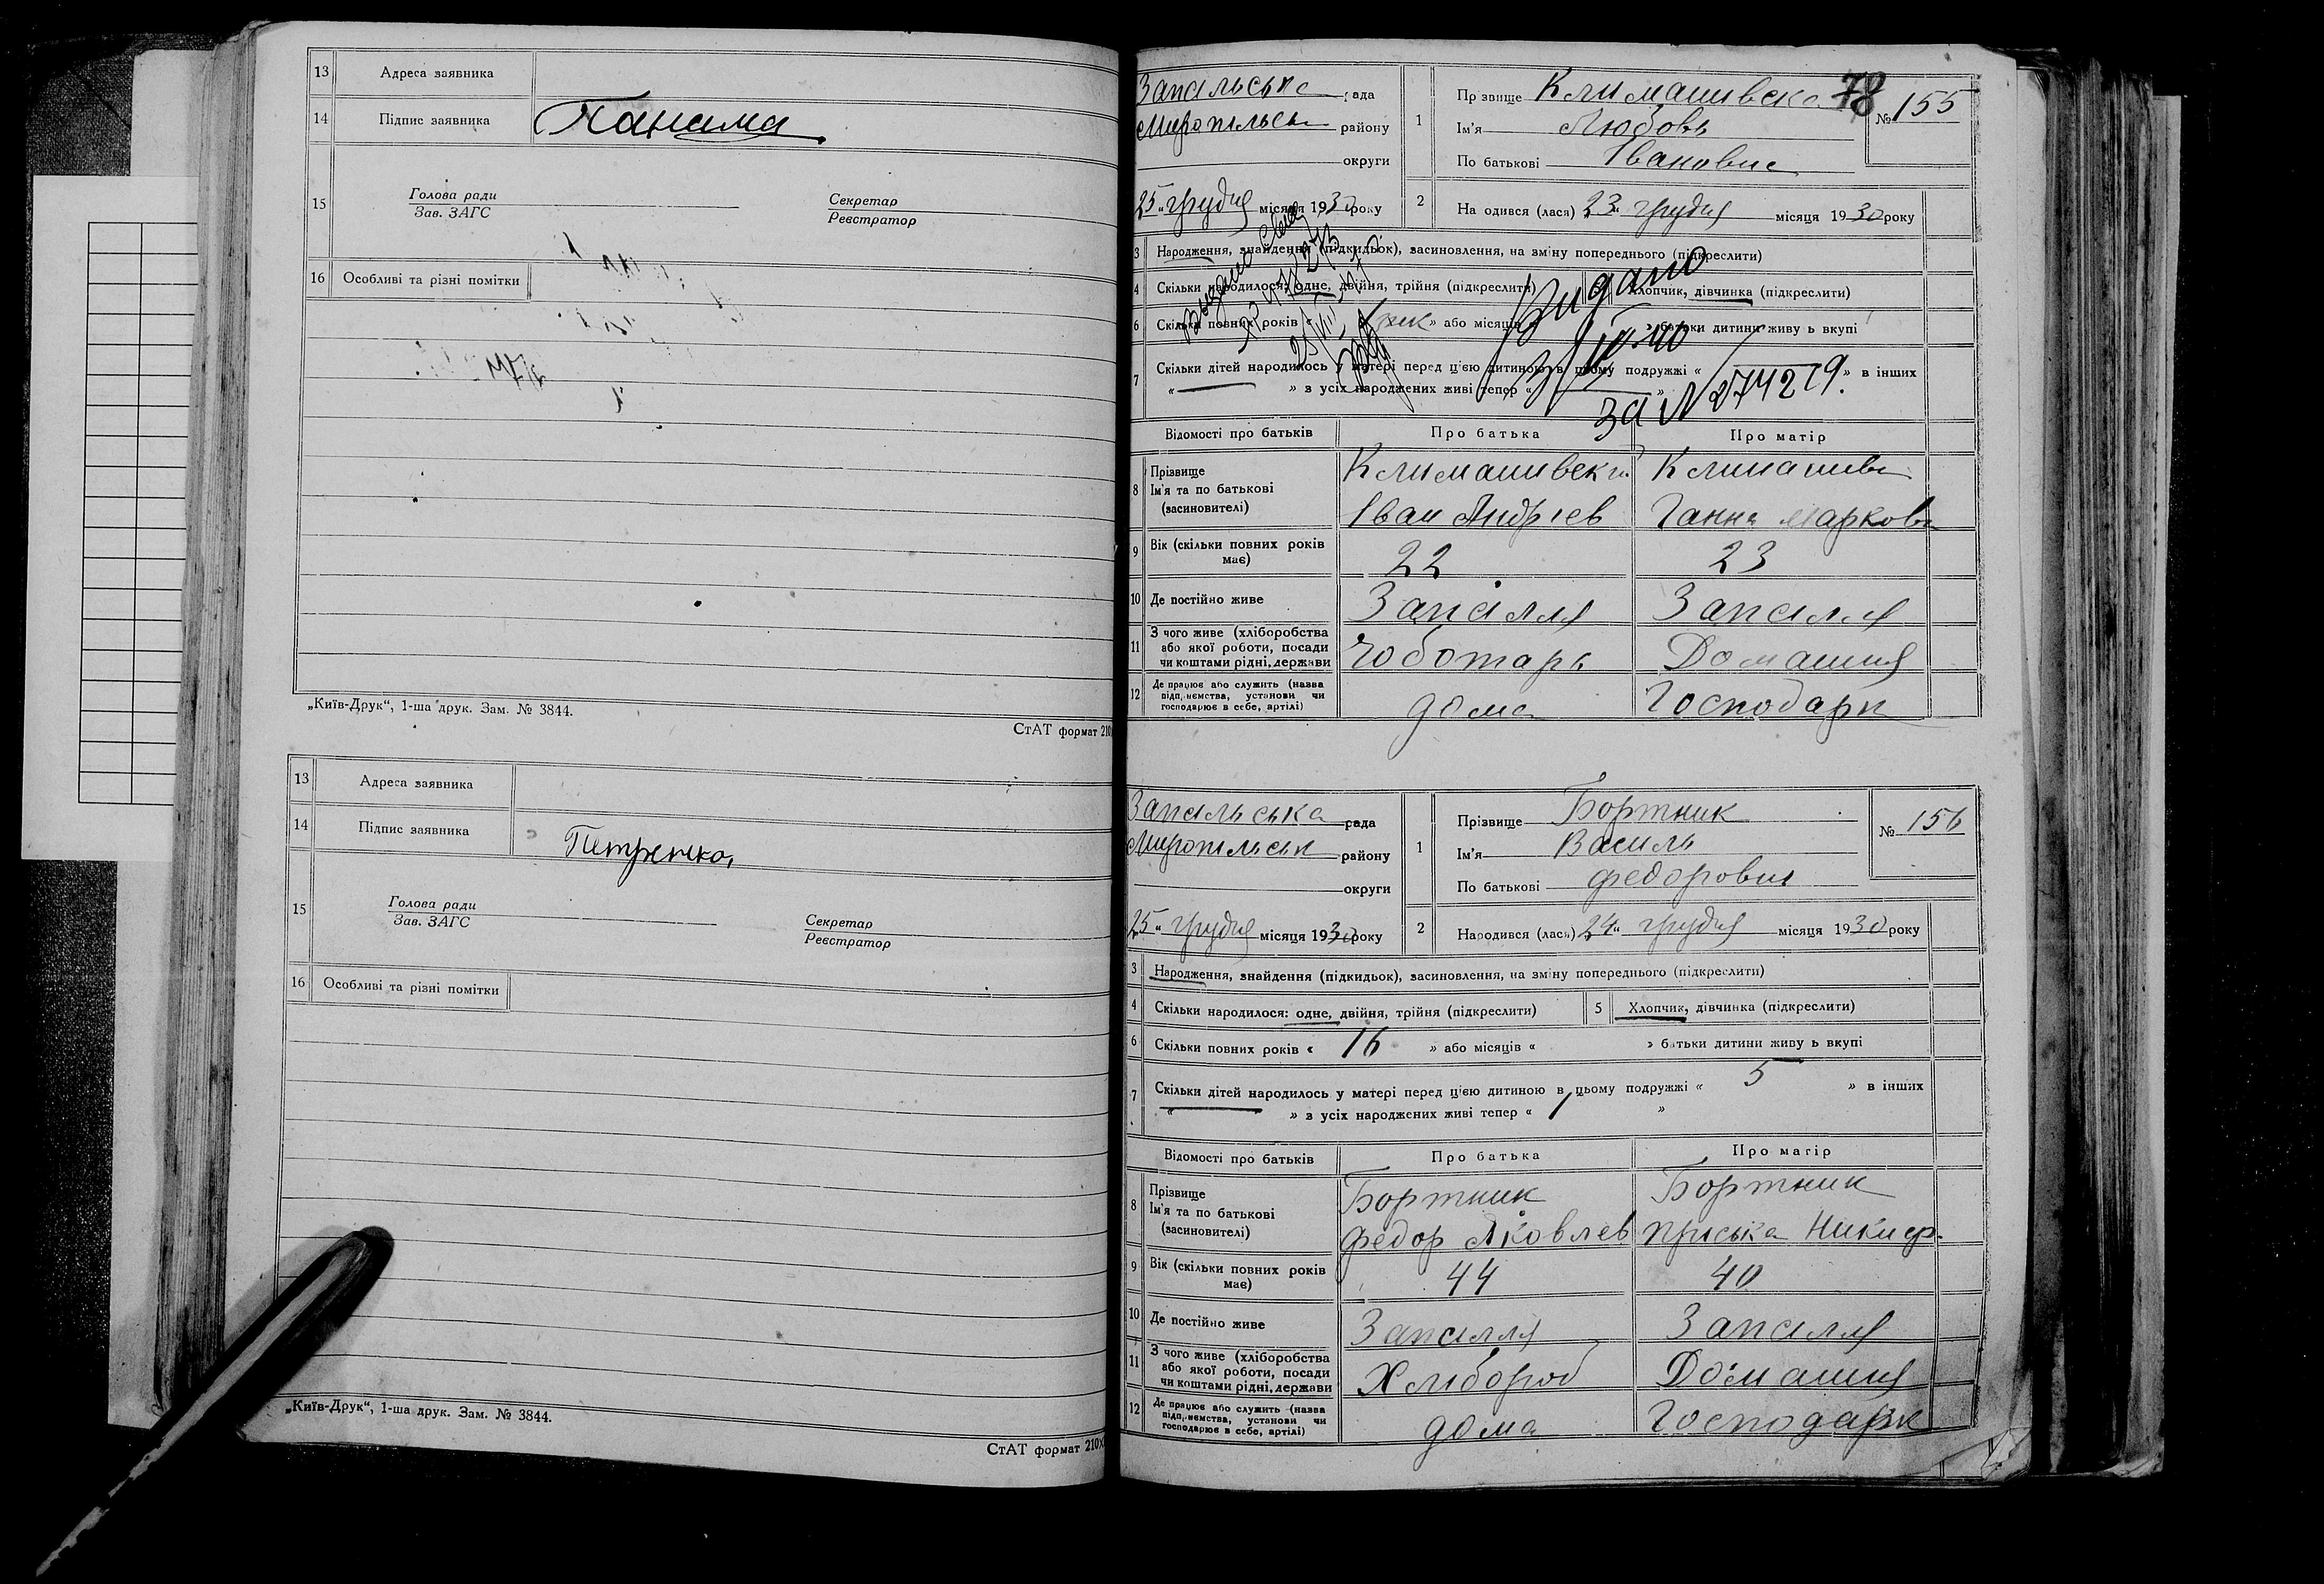 13 Адреса заявника
14 Підпис заявника Панама
15 Голова ради
Зав. ЗАГС
Секретар
Реєстратор
16 Особливі та різні помітки
„Київ-Друк“, 1-ша друк. Зам. № 3844.
СтАТ формат 210
13 Адреса заявника
14 Підпис заявника Петренко,
15 Голова ради
Зав. ЗАГС
Секретар
Реєстратор
16 Особливі та різні помітки
„Київ-Друк“, 1-ша друк. Зам. № 3844.
СтАТ формат 210×
78
Запальська рада
Миропільськ району
округи
25 „ грудня місяця 1930 року
1 Прізвище Климашивска
Ім'я Любовь
По батькові Івановна
№ 155
2 Народився (лася) 23 „ грудня місяця 1930 року
3 Народження, знайдення (підкидьок), засиновлення, на зміну попереднього (підкреслити)
4 Скільки народилося: одне, двійня, трійня (підкреслити) Хлопчик, дівчинка (підкреслити)
6 Скільки повних років « рік » або місяців « » батьки дитини живу ь вкупі
7 Скільки дітей народилось у матері перед цією дитиною в цьому подружжі « » в інших
« » з усіх народжених живі тепер « »
Видано
за № 274219.
Відомості про батьків Про батька Про матір
8 Прізвище
Ім'я та по батькові
(засиновителі)
Климашивски Климашив
Іван Андрієв Ганна Марковн
9 Вік (скільки повних років має) 22 23
10 Де постійно живе Запілля Запілля
11 З чого живе (хліборобства
або якої роботи, посади
чи коштами рідні, держави
Чоботарь Домашня
12 Де працює або служить (назва
підприємства, установи чи
господарює в себе, артілі)
дома Господарк
Запальська рада
Миропільськ району
округи
25 „ грудня місяця 1930 року
1 Прізвище Бортник
Ім'я Василь
По батькові Федорович
№ 156
2 Народився (лася) 24 „ грудня місяця 1930 року
3 Народження, знайдення (підкидьок), засиновлення, на зміну попереднього (підкреслити)
4 Скільки народилося: одне, двійня, трійня (підкреслити) 5 Хлопчик, дівчинка (підкреслити)
6 Скільки повних років « 16 » або місяців « » батьки дитини живу ь вкупі
7 Скільки дітей народилось у матері перед цією дитиною в цьому подружжі « 5 » в інших
« » з усіх народжених живі тепер « 1 »
Відомості про батьків Про батька Про матір
8 Прізвище
Ім'я та по батькові
(засиновителі)
Бортник Бортник
Федор Яковлев Пріська Никиф.
9 Вік (скільки повних років має) 44 40
10 Де постійно живе Запілля Запілля
11 З чого живе (хліборобства
або якої роботи, посади
чи коштами рідні, держави
Хлібороб Домашня
12 Де працює або служить (назва
підприємства, установи чи
господарює в себе, артілі)
дома Господарк